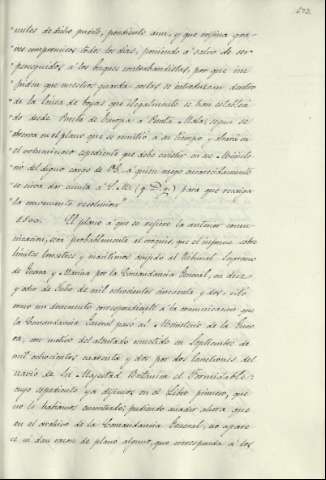 "mites de dicho puerto, pendiente aun, y que origina gra-
"ves compromisos todos los dias, poniendo a salvo de ser
"perseguidos a los buques contrabandistas, por que im-
"piden que nuestros guarda-costas se introduzcan dentro
"de la linea de boyas que ilegalmente se han estableci-
"do desde Punta de Europa a Punta Mala, segun se
"observa en el plano que se remitió a su tiempo y obrará en
"el voluminoso espediente que debe existir en ese Ministe-
"rio del digno cargo de V.E. á quien ruego encarecidamente
"se sirva dar cuenta á S.M. (q. D. g.) para que recaiga
"la conveniente resolucion"
El plano á que se refiere la anterior comu-
nicacion, será probablemente el croquis, que el informe sobre
limites terrestres y maritimos dirijido al Tribunal Supremo
de Guerra y Marina por la Comandancia General, en diez
y ocho de Julio de mil ochocientos cincuenta y dos, citó
como un documento correspondiente a la comunicacion que
la Comandancia General pasó al Ministerio de la Guer-
ra, con motivo del atentado cometido en Septiembre de
mil ochocientos cuarenta y dos por dos lanchones del
navio de Su Magestad Britanica el Formidable:
cuyo espediente ya dijimos en el Libro primero, que
no le habiamos encontrado; pudiendo añadir ahora que
en el archivo de la Comandancia General, no apare-
ce ni dan razon de plano alguno, que corresponda a los